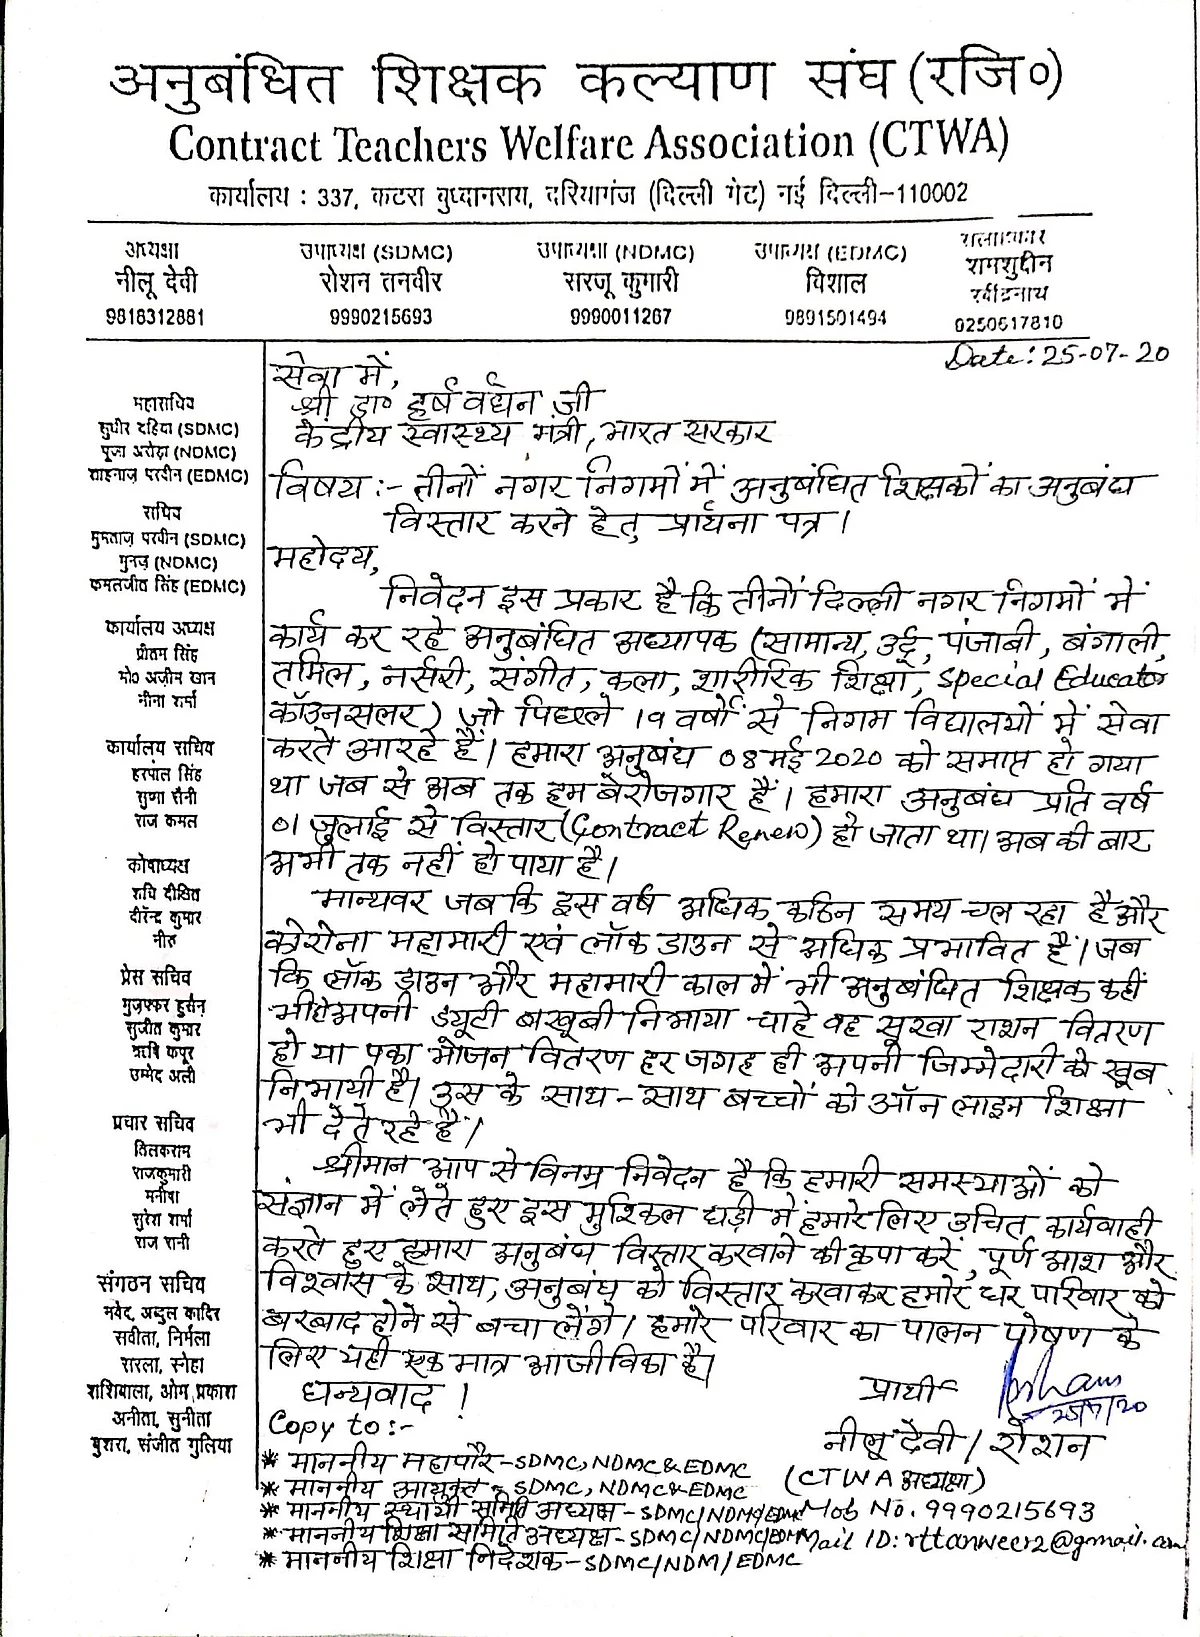 अनुबंधित शिक्षक कल्याण संघ (रजि०)
Contract Teachers Welfare Association (CTWA)
कार्यालय : 337, कटरा बुध्दानराय, दरियागंज (दिल्ली गेट) नई दिल्ली-110002
अध्यक्षा
नीलू देवी
9818312881
उपाध्यक्ष (SDMC)
रोशन तनवीर
9990215693
उपाध्यक्षा (NDMC)
सरजू कुमारी
9990011267
उपाध्यक्ष (EDMC)
विशाल
9891501494
सलाहकार
शमशुद्दीन
रवीन्द्रनाथ
9250617810
Date: 25-07-20
महासचिव
सुधीर दहिया (SDMC)
पूजा अरोड़ा (NDMC)
शाहनाज़ परवीन (EDMC)
सचिव
मुमताज़ परवीन (SDMC)
(NDMC)
कमलजीत सिंह (EDMC)
कार्यालय अध्यक्ष
प्रीतम सिंह
मो० अज़ीम खान
मीना शर्मा
कार्यालय सचिव
हरपाल सिंह
सुषमा सैनी
राज कमल
कोषाध्यक्ष
शचि दीक्षित
वीरेन्द्र कुमार
नीरु
प्रेस सचिव
मुज़फ्फर हुसैन
सुजीत कुमार
ऋषि कपूर
उम्मेद अली
प्रचार सचिव
तिलकराम
राजकुमारी
मनीषा
सुरेश शर्मा
राज रानी
संगठन सचिव
नवेद, अब्दुल कादिर
सवीता, निर्मला
सरला, स्नेहा
शशिबाला, ओम प्रकाश
अनीता, सुनीता
बुशरा, संजीत गुलिया
सेवा में,
श्री डा० हर्ष वर्धन जी
केंद्रीय स्वास्थ्य मंत्री, भारत सरकार
विषय :- तीनों नगर निगमों में अनुबंधित शिक्षकों का अनुबंध
विस्तार करने हेतु प्रार्थना पत्र।
महोदय,
निवेदन इस प्रकार है कि तीनों दिल्ली नगर निगमों में
कार्य कर रहे अनुबंधित अध्यापक (सामान्य, उर्दू, पंजाबी, बंगाली,
तमिल, नर्सरी, संगीत, कला, शारीरिक शिक्षा, Special Educator
कॉउनसलर) जो पिछले 19 वर्षों से निगम विद्यालयों में सेवा
करते आ रहे हैं। हमारा अनुबंध 08 मई 2020 को समाप्त हो गया
था जब से अब तक हम बेरोजगार हैं। हमारा अनुबंध प्रति वर्ष
01 जुलाई से विस्तार (Contract Renew) हो जाता था। अब की बार
अभी तक नहीं हो पाया है।
मान्यवर जब कि इस वर्ष अधिक कठिन समय चल रहा है और
कोरोना महामारी एवं लॉक डाउन से अधिक प्रभावित है। जब
कि लॉक डाउन और महामारी काल में भी अनुबंधित शिक्षक कहीं
अपनी ड्यूटी बखूबी निभाया चाहे वह सूखा राशन वितरण
हो या पका भोजन वितरण हर जगह ही अपनी जिम्मेदारी को खूब
निभायी है। उस के साथ-साथ बच्चों को ऑन लाइन शिक्षा
भी देते रहे हैं।
श्रीमान आप से विनम्र निवेदन है कि हमारी समस्याओं को
संज्ञान में लेते हुए इस मुश्किल घड़ी में हमारे लिए उचित कार्यवाही
करते हुए हमारा अनुबंध विस्तार करवाने की कृपा करें, पूर्ण आश और
विश्वास के साथ, अनुबंध को विस्तार करवाकर हमारे घर परिवार को
बरबाद होने से बचा लेंगे। हमारे परिवार का पालन पोषण के
लिए यही एक मात्र आजीविका है।
धन्यवाद !
प्रार्थी
25/7/20
नीलू देवी / रोशन
(CTWA अध्यक्षा)
Mob No. 9990215693
Mail ID: rttanweer2@gmail.com
Copy to:-
* माननीय महापौर - SDMC, NDMC & EDMC
* माननीय आयुक्त - SDMC, NDMC & EDMC
* माननीय स्थायी समिति अध्यक्ष - SDMC/NDMC/EDMC
* माननीय शिक्षा समिति अध्यक्ष - SDMC/NDMC/EDMC
* माननीय शिक्षा निदेशक - SDMC/NDM/EDMC